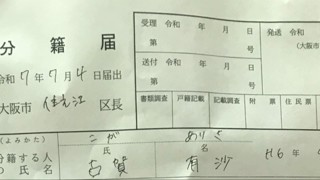 分籍届
受理 令和 年 月 日
発送 令和
第 号
(大阪市
送付 令和 年 月 日
第 号
令和 7年 7月 4日届出
大阪市 住之江 区長
書類調査 戸籍記載 記載調査 附票 住民票
(よみかた) こが ありさ
氏 名
分籍する人の氏名
古賀 有沙
H6年